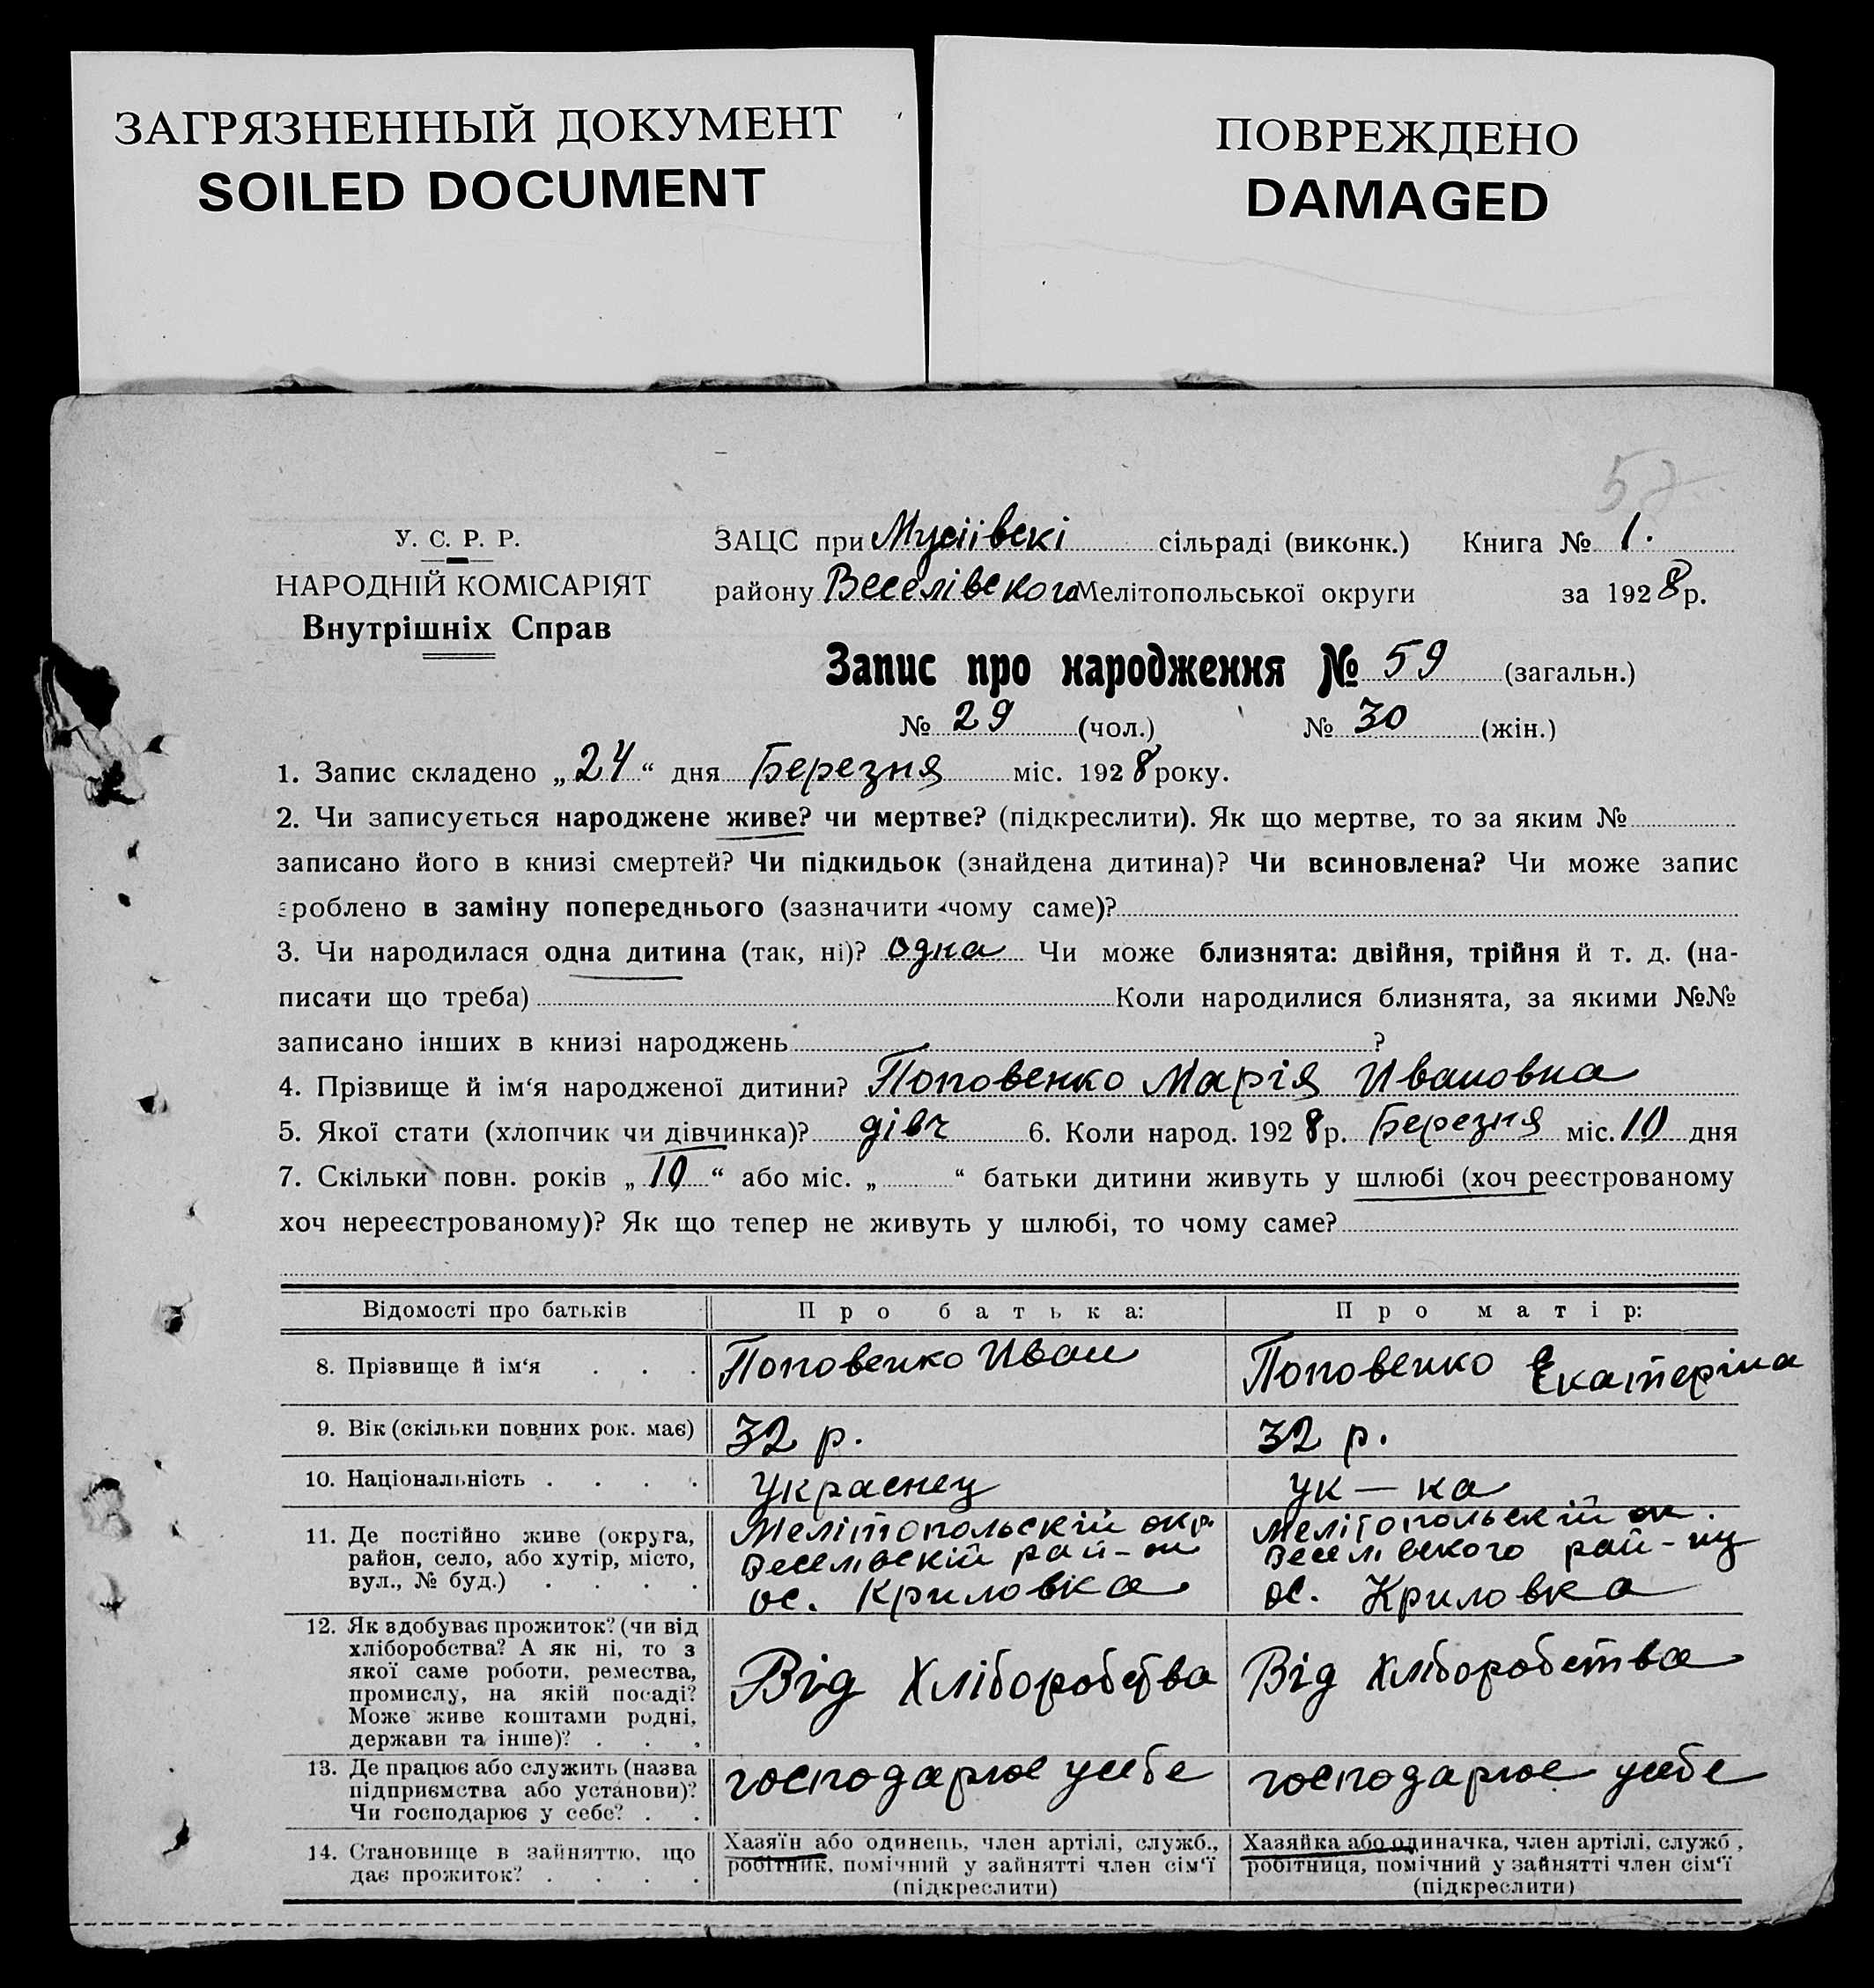 ЗАГРЯЗНЕННЫЙ ДОКУМЕНТ
SOILED DOCUMENT
ПОВРЕЖДЕНО
DAMAGED
У. С. Р. Р.
НАРОДНІЙ КОМІСАРІЯТ
Внутрішніх Справ
ЗАЦС при Мусіівскі сільраді (виконк.) Книга № 1.
району Веселівского Мелітопольської округи за 1928 р.
Запис про народження № 59 (загальн.)
№ 29 (чол.) № 30 (жін.)
1. Запис складено „24“ дня Березня міс. 1928 року.
2. Чи записується народжене живе? чи мертве? (підкреслити). Як що мертве, то за яким №
записано його в книзі смертей? Чи підкидьок (знайдена дитина)? Чи всиновлена? Чи може запис
зроблено в заміну попереднього (зазначити чому саме)?
3. Чи народилася одна дитина (так, ні)? одна Чи може близнята: двійня, трійня й т. д. (на-
писати що треба) Коли народилися близнята, за якими №№
записано інших в книзі народжень ?
4. Прізвище й ім‘я народженої дитини? Поповенко Марія Ивановна
5. Якої стати (хлопчик чи дівчинка)? дівч 6. Коли народ. 1928 р. Березня міс. 10 дня
7. Скільки повн. років „10“ або міс. „ “ батьки дитини живуть у шлюбі (хоч реєстрованому
хоч нереєстрованому)? Як що тепер не живуть у шлюбі, то чому саме?
Відомості про батьків Про батька: Про матір:
8. Прізвище й ім‘я . . . Поповенко Иван Поповенко Екатеріна
9. Вік (скільки повних рок. має) 32 р. 32 р.
10. Національність . . . . Украенец ук — ка
11. Де постійно живе (округа,
район, село, або хутір, місто,
вул., № буд.) . . . .
Мелітопольскій окр.
Веселівскій рай-он
ос. Криловка
Мелітопольскій ок.
Веселівского рай-ну
ос. Криловка
12. Як здобуває прожиток? (чи від
хліборобства? А як ні, то з
якої саме роботи, ремества,
промислу, на якій посаді?
Може живе коштами родні,
держави та інше)? . . .
Від Хліборобства
Від Хліборобства
13. Де працює або служить (назва
підприємства або установи)?
Чи господарює у себе? . .
господарює усебе
господарює усебе
14. Становище в зайняттю, що
дає прожиток? . . . .
Хазяїн або одинець, член артілі, служб.,
робітник, помічний у зайнятті член сім‘ї
(підкреслити)
Хазяйка або одиначка, член артілі, служб.,
робітниця, помічний у зайнятті член сім‘ї
(підкреслити)